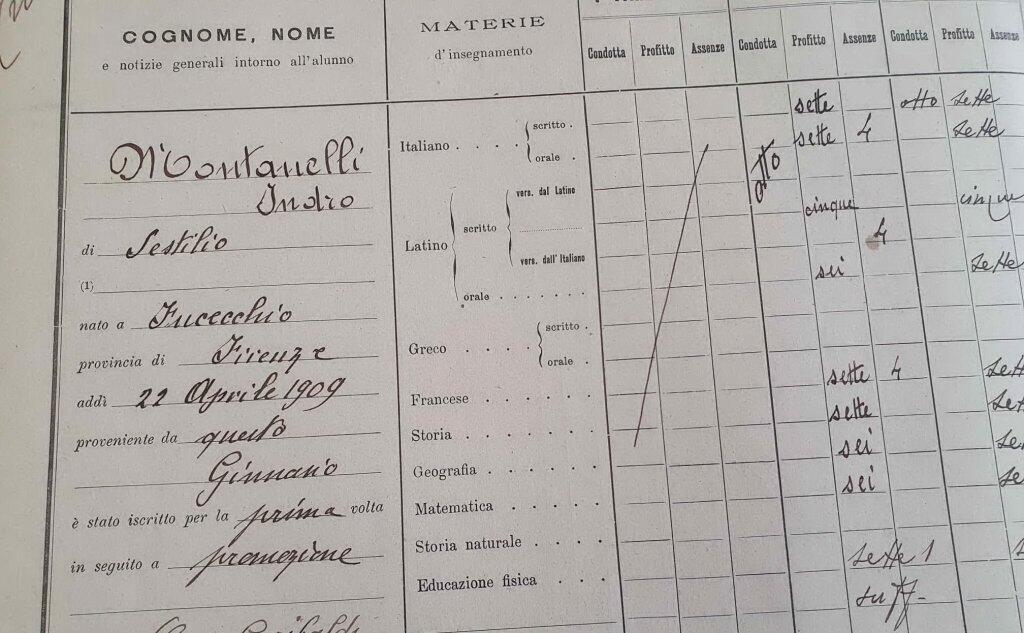 COGNOME, NOME
e notizie generali intorno all'alunno
Montanelli
Indro
di Sestilio
(1)
nato a Fucecchio
provincia di Firenze
addì 22 Aprile 1909
proveniente da questo
Ginnasio
è stato iscritto per la prima volta
in seguito a promozione
MATERIE
d'insegnamento
Condotta Profitto Assenze Condotta Profitto Assenze Condotta Profitto Assenze
Italiano scritto sette otto sette
orale sette 4 sette
otto
Latino scritto vers. dal Latino cinque
vers. dall'Italiano 4
orale sei sette
Greco scritto
orale
Francese sette 4
Storia sette
Geografia sei
Matematica sei
Storia naturale
Educazione fisica sette 1
suff-